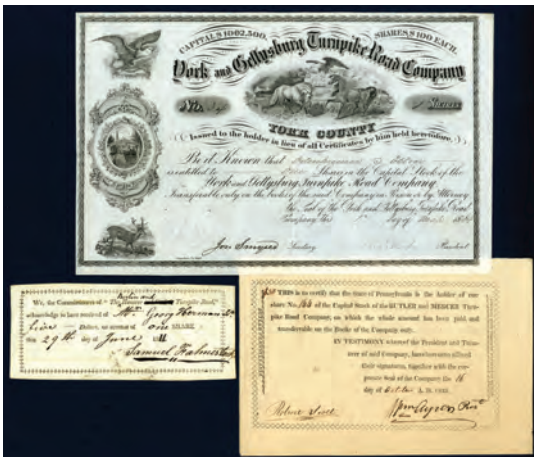 CAPITAL $1002,500. SHARES $100 EACH.
York and Gettysburg Turnpike Road Company
No.
SHARES
YORK COUNTY
Issued to the holder in lieu of all Certificates by him held heretofore.
Be it Known that
is entitled to Shares in the Capital Stock of the
York and Gettysburg Turnpike Road Company
Transferable only on the books of the said Company in Person or by Attorney
the Seal of the York and Gettysburg Turnpike Road
Company this day of
Secretary President
We, the Commissioners of "The Turnpike Road,"
acknowledge to have received of Mr. Georg Herman
five Dollars, on account of one SHARE
this 29th day of June
Samuel
THIS is to certify that the state of Pennsylvania is the holder of one
share No. 166 of the Capital Stock of the BUTLER and MERCER Turn-
pike Road Company, on which the whole amount has been paid and
transferable on the Books of the Company only.
IN TESTIMONY whereof the President and Treasu-
rer of said Company, have hereunto affixed
their signatures, together with the cor-
porate Seal of the Company the 16
day of A. D. 1822.
Robert Scott
Wm Ayres Prest